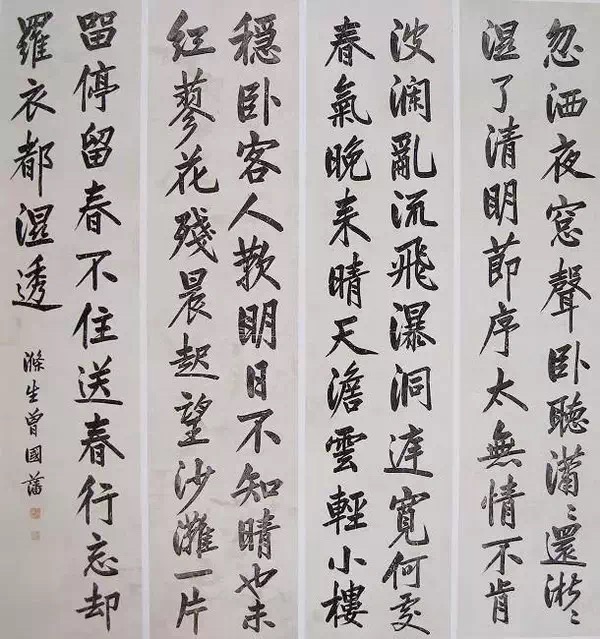 忽洒夜窓聲卧聽瀟〻還淅〻
濕了清明節序太無情不肯
波澜亂流飛瀑洞達寬何處
春氣晚来晴天澹雲輕小樓
穩卧客人歎明日不知晴也未
紅蓼花殘晨起望沙灘一片
畱停留春不住送春行忘却
羅衣都濕透
滌生曾國藩